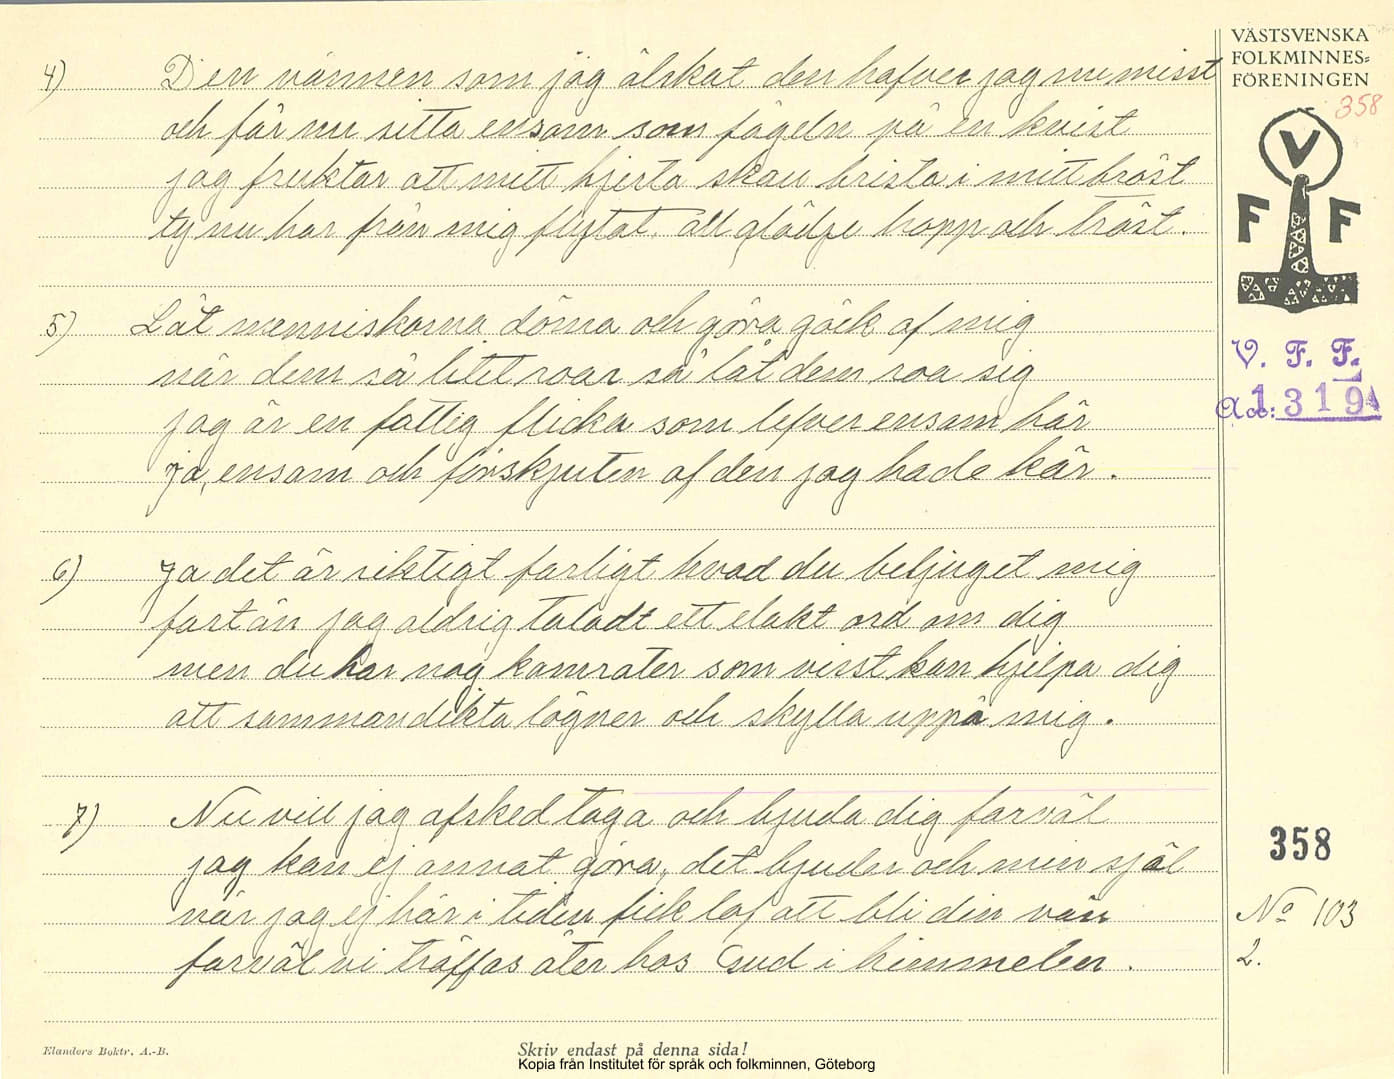 VÄSTSVENSKA
FOLKMINNES-
FÖRENINGEN
358
V
F F
V. F. F.
Acc: 1319
4) Den vännen som jag älskat den hafver jag nu misst
och får nu sitta ensam som fågeln på en kvist
jag fruktar att mitt hjerta skall brista i mitt bröst
ty nu har från mig flytat all glädje hopp och tröst.
5) Låt menniskorna döma och göra gäck af mig
när dem så litet roar så låt dem roa sig
jag är en fattig flicka som lefver ensam här
ja, ensam och förskjuten af den jag hade kär.
6) Ja det är riktigt farligt hvad du beljuget mig
fast än jag aldrig taladt ett elakt ord om dig
men du har nog kamrater som visst kan hjelpa dig
att sammandikta lögner och skylla uppå mig.
7) Nu vill jag afsked taga och bjuda dig farväl
jag kan ej annat göra, det bjuder och min själ
när jag ej här i tiden fick lof att bli din vän
farväl vi träffas åter hos Gud i himmelen.
358
No 103
2.
Elanders Boktr. A.-B.
Skriv endast på denna sida!
Kopia från Institutet för språk och folkminnen, Göteborg